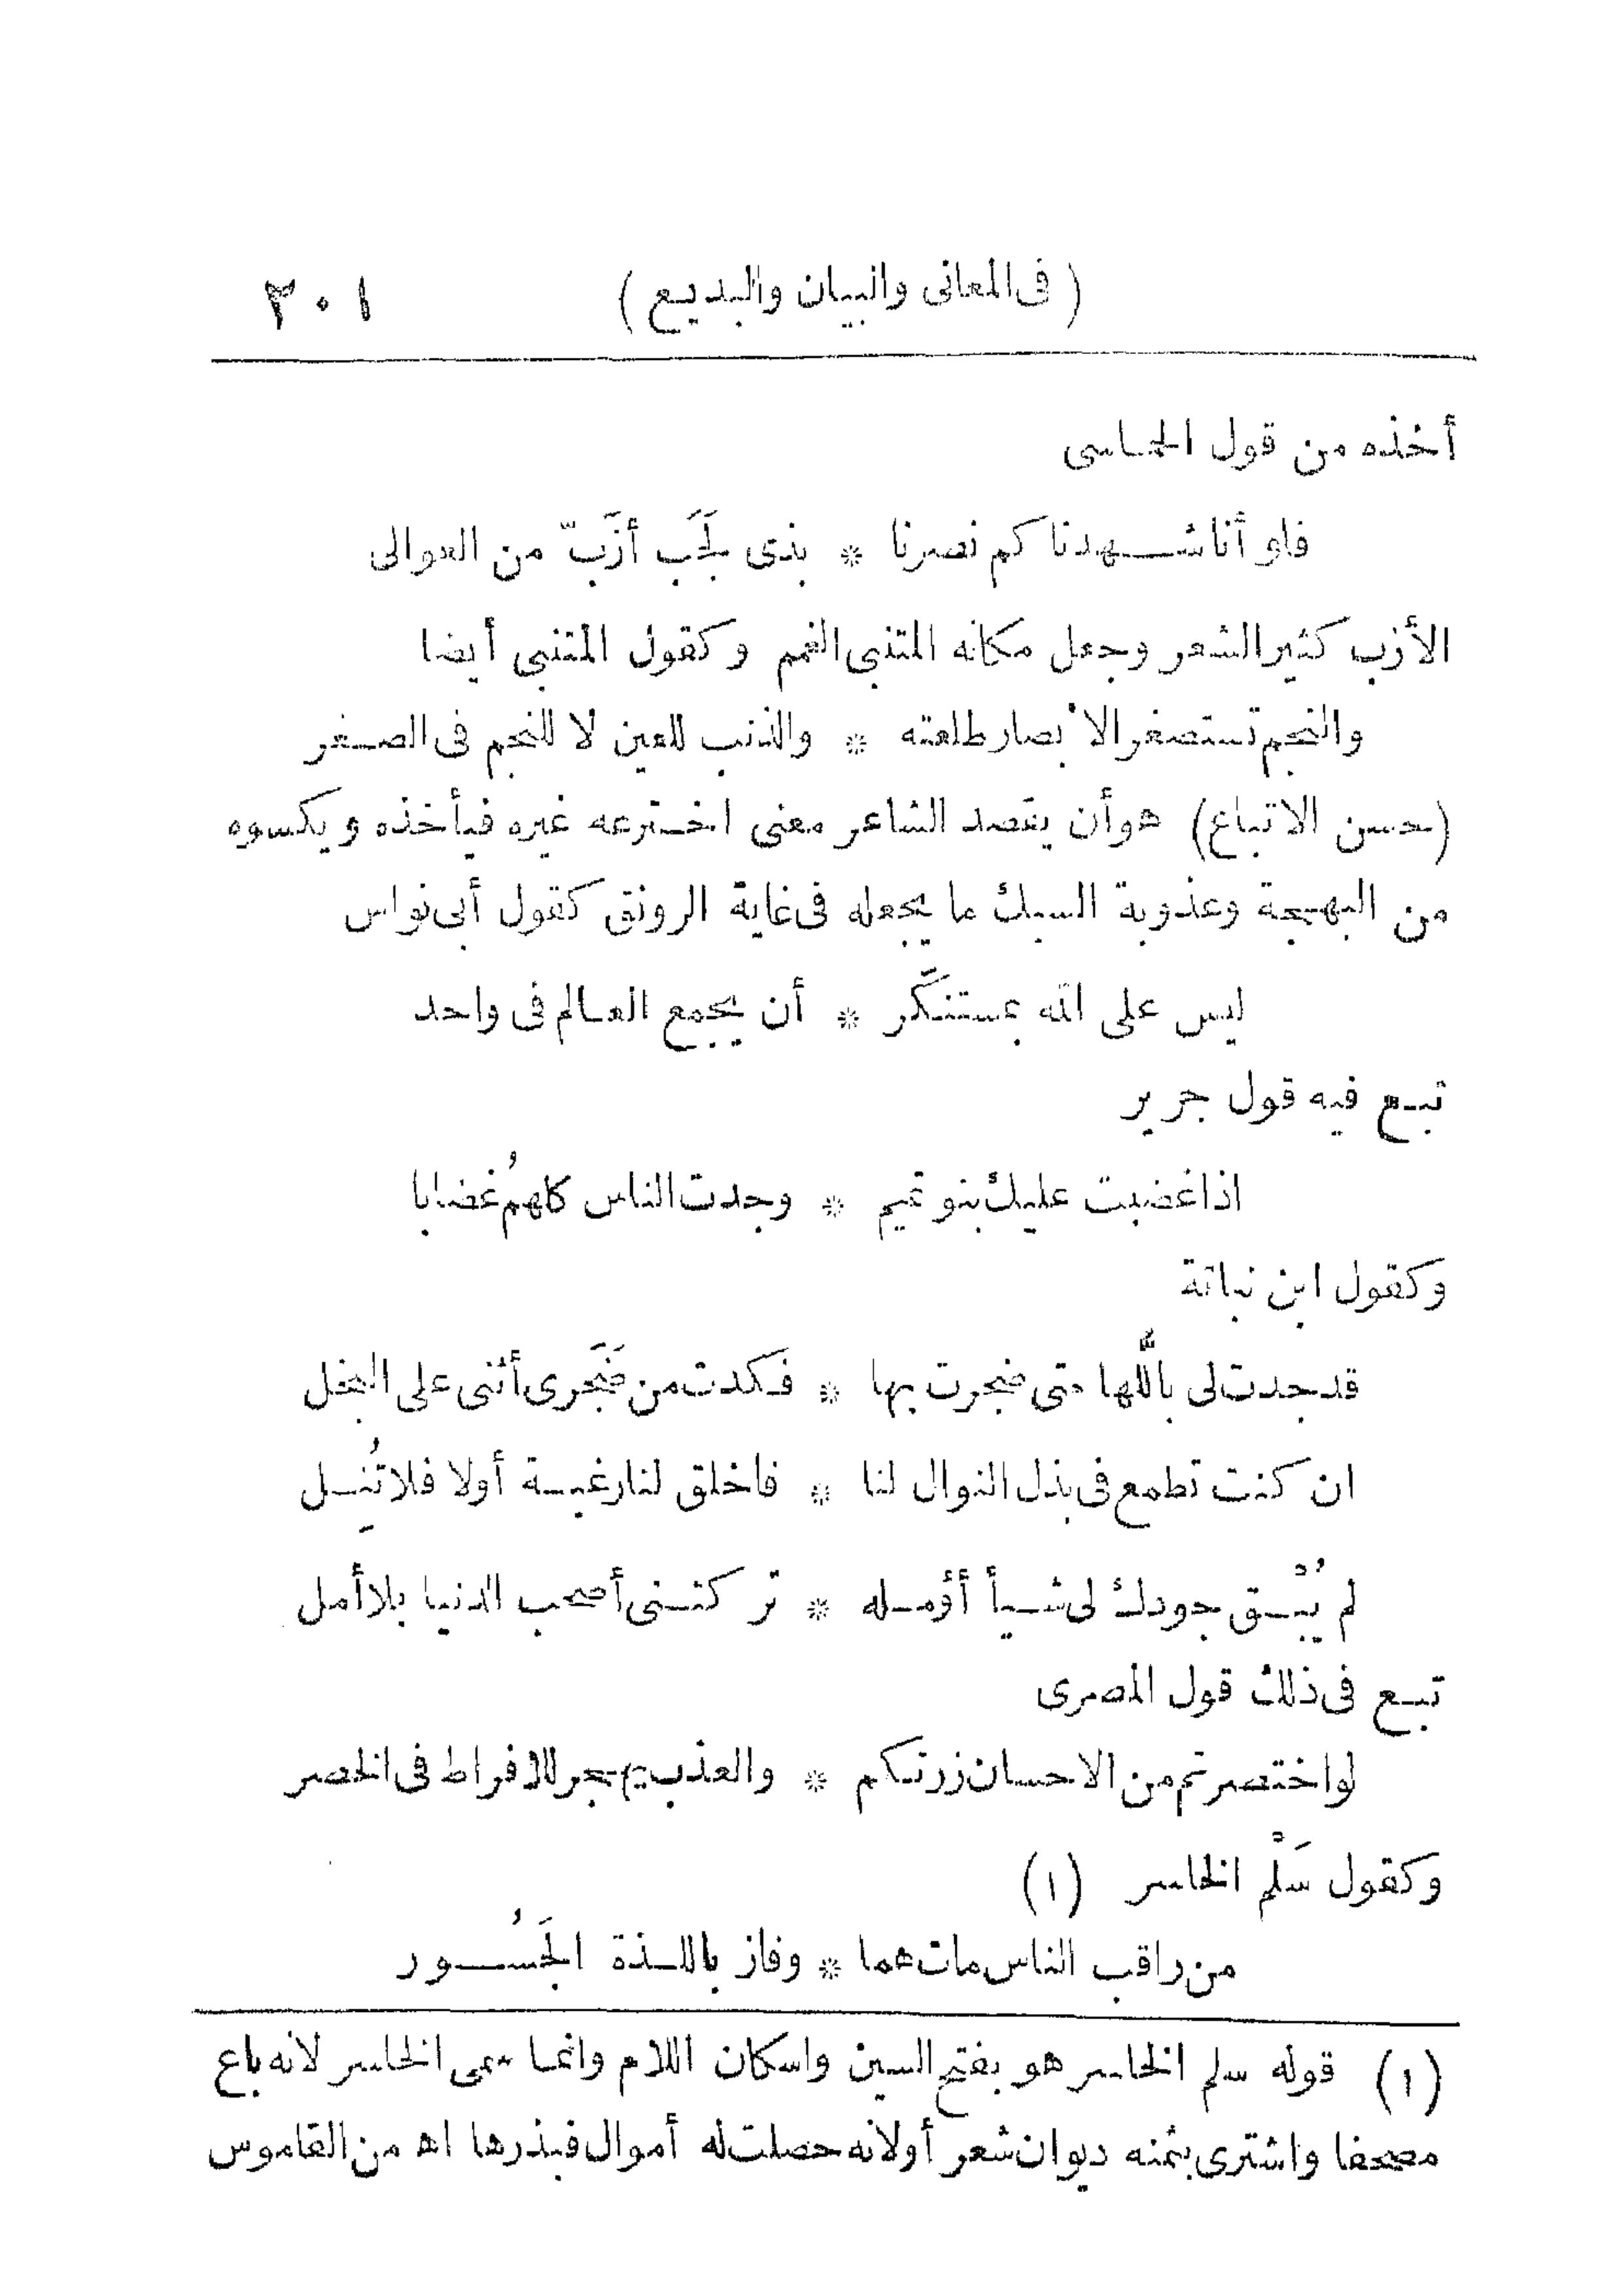 (فى المعانى والبيان والبديع) ٣٠١
أخذه من قول الحماسى
فلو أنا شهدنا كم نصرنا * بذى لَجَب أزَبّ من العوالى
الأزب كثير الشعر وجعل مكانه المتنبى الغمم وكقول المتنبى أيضا
والنجم تستصغر الأبصار طلعته * والذنب للعين لا للنجم فى الصغر
(حسن الاتباع) هو أن يقصد الشاعر معنى اخترعه غيره فيأخذه ويكسوه
من البهجة وعذوبة السبك ما يجعله فى غاية الرونق كقول أبى نواس
ليس على الله بمستنكَر * أن يجمع العالم فى واحد
تبع فيه قول جرير
اذا غضبت عليك بنو تميم * وجدت الناس كلهمُ غضابا
وكقول ابن نباتة
قد جدت لى باللُّها حتى ضجرت بها * فكدت من ضَجَرى أثنى على البخل
ان كنت تطمع فى بذل النوال لنا * فاخلق لنا رغبة أولا فلا تُنِل
لم يُبْق جودك لى شيأ أؤمله * تركتنى أصحب الدنيا بلا أمل
تبع فى ذلك قول المصرى
لو اختصرتم من الاحسان زرتكم * والعذب يهجر للافراط فى الخصر
وكقول سَلْم الخاسر (١)
من راقب الناس مات هما * وفاز باللذة الجَسُور
(١) قوله سلم الخاسر هو بفتح السين واسكان اللام وانما سمى الخاسر لانه باع
مصحفا واشترى بثمنه ديوان شعر أولانه حصلت له أموال فبذرها اه من القاموس